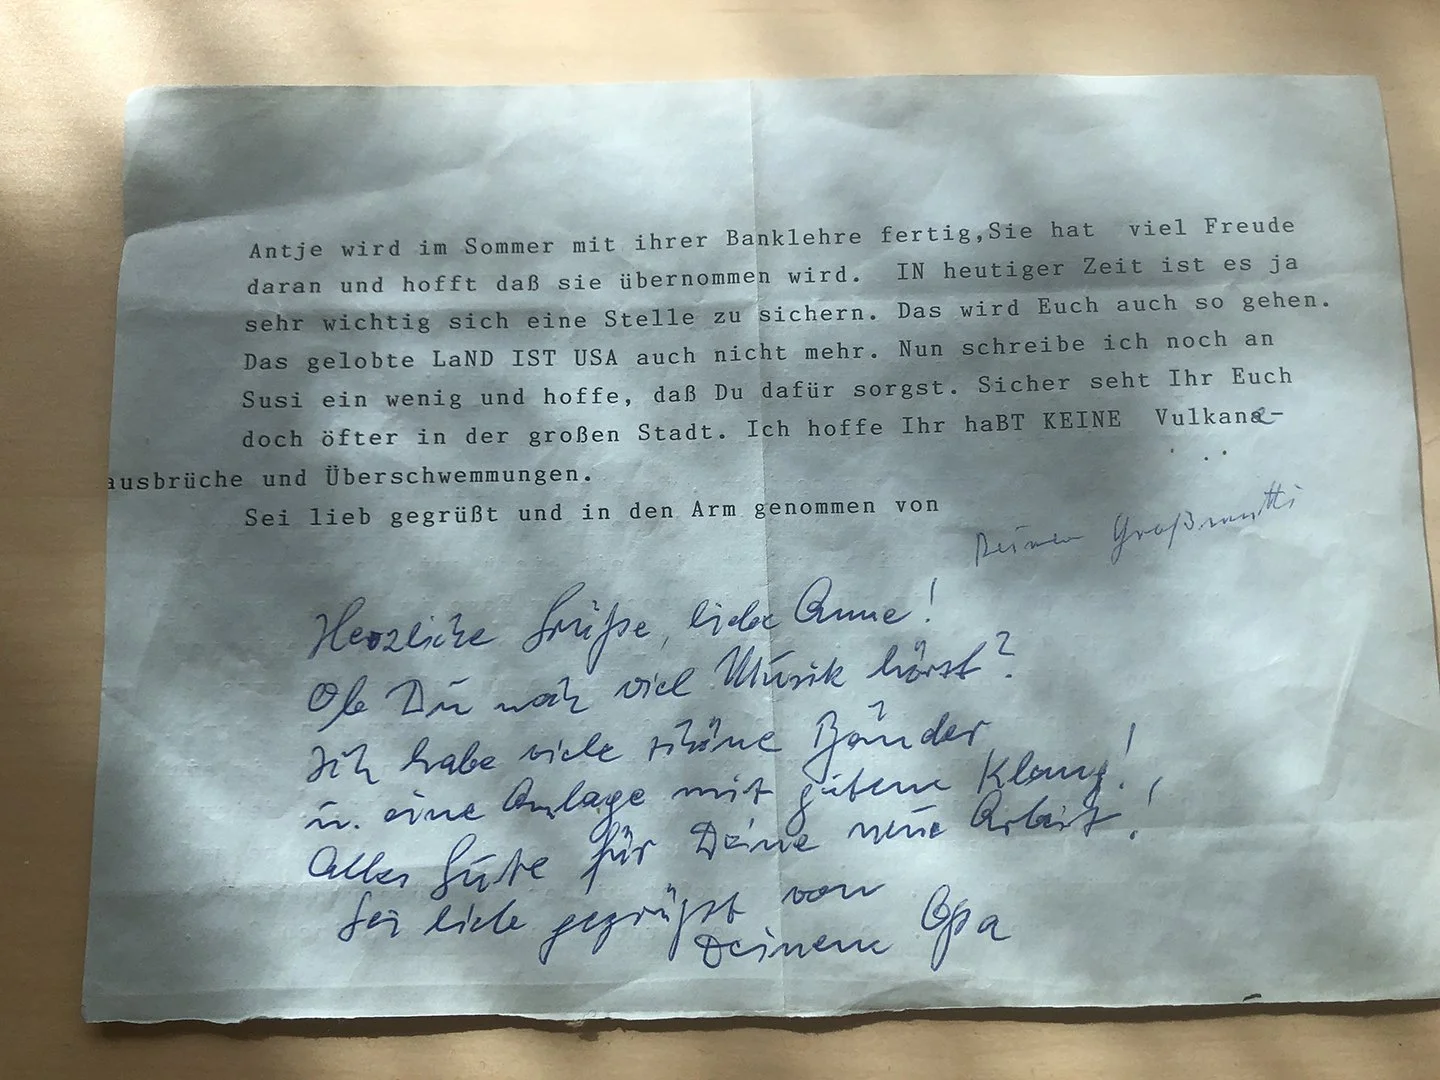 Antje wird im Sommer mit ihrer Banklehre fertig,Sie hat viel Freude
daran und hofft daß sie übernommen wird. IN heutiger Zeit ist es ja
sehr wichtig sich eine Stelle zu sichern. Das wird Euch auch so gehen.
Das gelobte LaND IST USA auch nicht mehr. Nun schreibe ich noch an
Susi ein wenig und hoffe, daß Du dafür sorgst. Sicher seht Ihr Euch
doch öfter in der großen Stadt. Ich hoffe Ihr haBT KEINE Vulkane-
ausbrüche und Überschwemmungen.
Sei lieb gegrüßt und in den Arm genommen von
Deiner Großmutti
Herzliche Grüße, liebe Anne!
Ob Du noch viel Musik hörst?
Ich habe viele schöne Bänder
u. eine Anlage mit gutem Klang!
Alles Gute für Deine neue Arbeit!
Sei lieb gegrüßt von
Deinem Opa